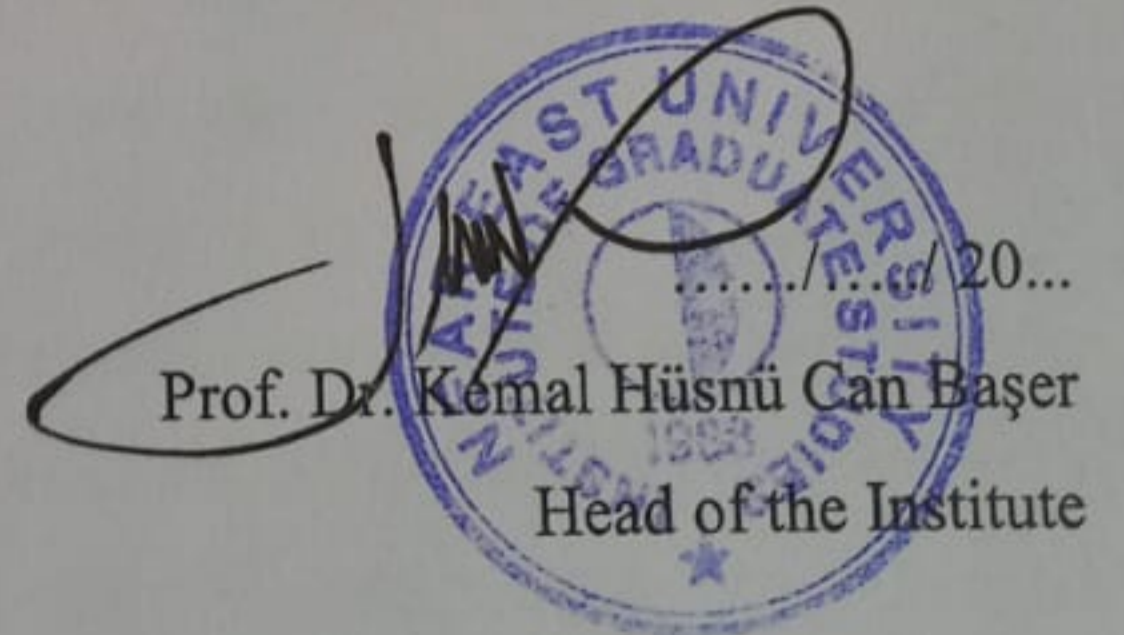 NEAR EAST UNIVERSITY
INSTITUTE OF GRADUATE STUDIES
....../....../ 20...
Prof. Dr. Kemal Hüsnü Can Başer
1988
Head of the Institute